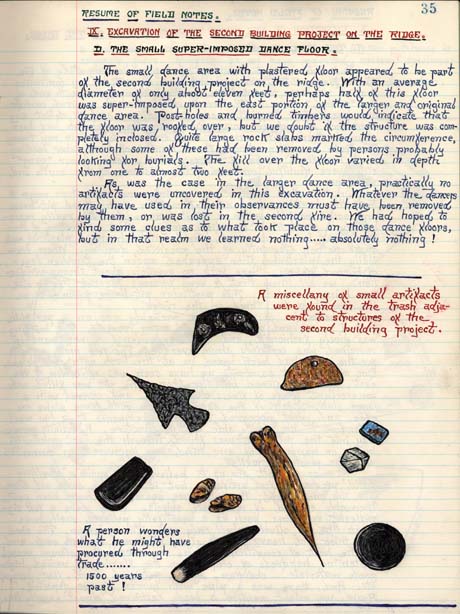 35
RESUME OF FIELD NOTES.
IX. EXCAVATION OF THE SECOND BUILDING PROJECT ON THE RIDGE.
D. THE SMALL SUPER-IMPOSED DANCE FLOOR.
The small dance area with plastered floor appeared to be part
of the second building project on the ridge. With an average
diameter of only about eleven feet, perhaps half of this floor
was super-imposed upon the east portion of the larger and original
dance area. Post-holes and burned timbers would indicate that
the floor was roofed over, but we doubt if the structure was com-
pletely inclosed. Quite large rock slabs marked the circumference,
although some of these had been removed by persons probably
looking for burials. The fill over the floor varied in depth
from one to almost two feet.
As was the case in the larger dance area, practically no
artifacts were uncovered in this excavation. Whatever the dancers
may have used in their observances must have been removed
by them, or was lost in the second fire. We had hoped to
find some clues as to what took place on those dance floors,
but in that realm we learned nothing..... absolutely nothing!
A miscellany of small artifacts
were found in the trash adja-
cent to structures of the
second building project.
A person wonders
what he might have
procured through
trade.......
1500 years
past!